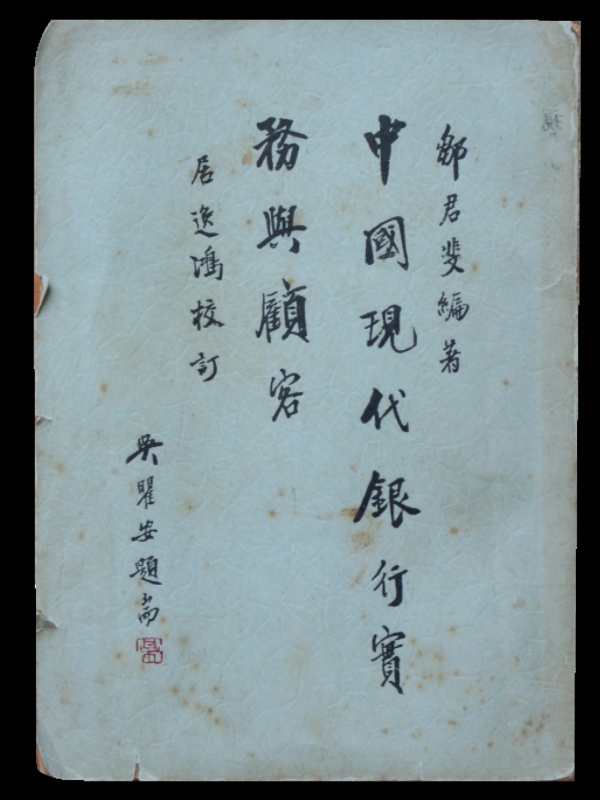 鄒君斐編著
中國現代銀行實
務與顧客
居逸鴻校訂
吳瞿安題耑